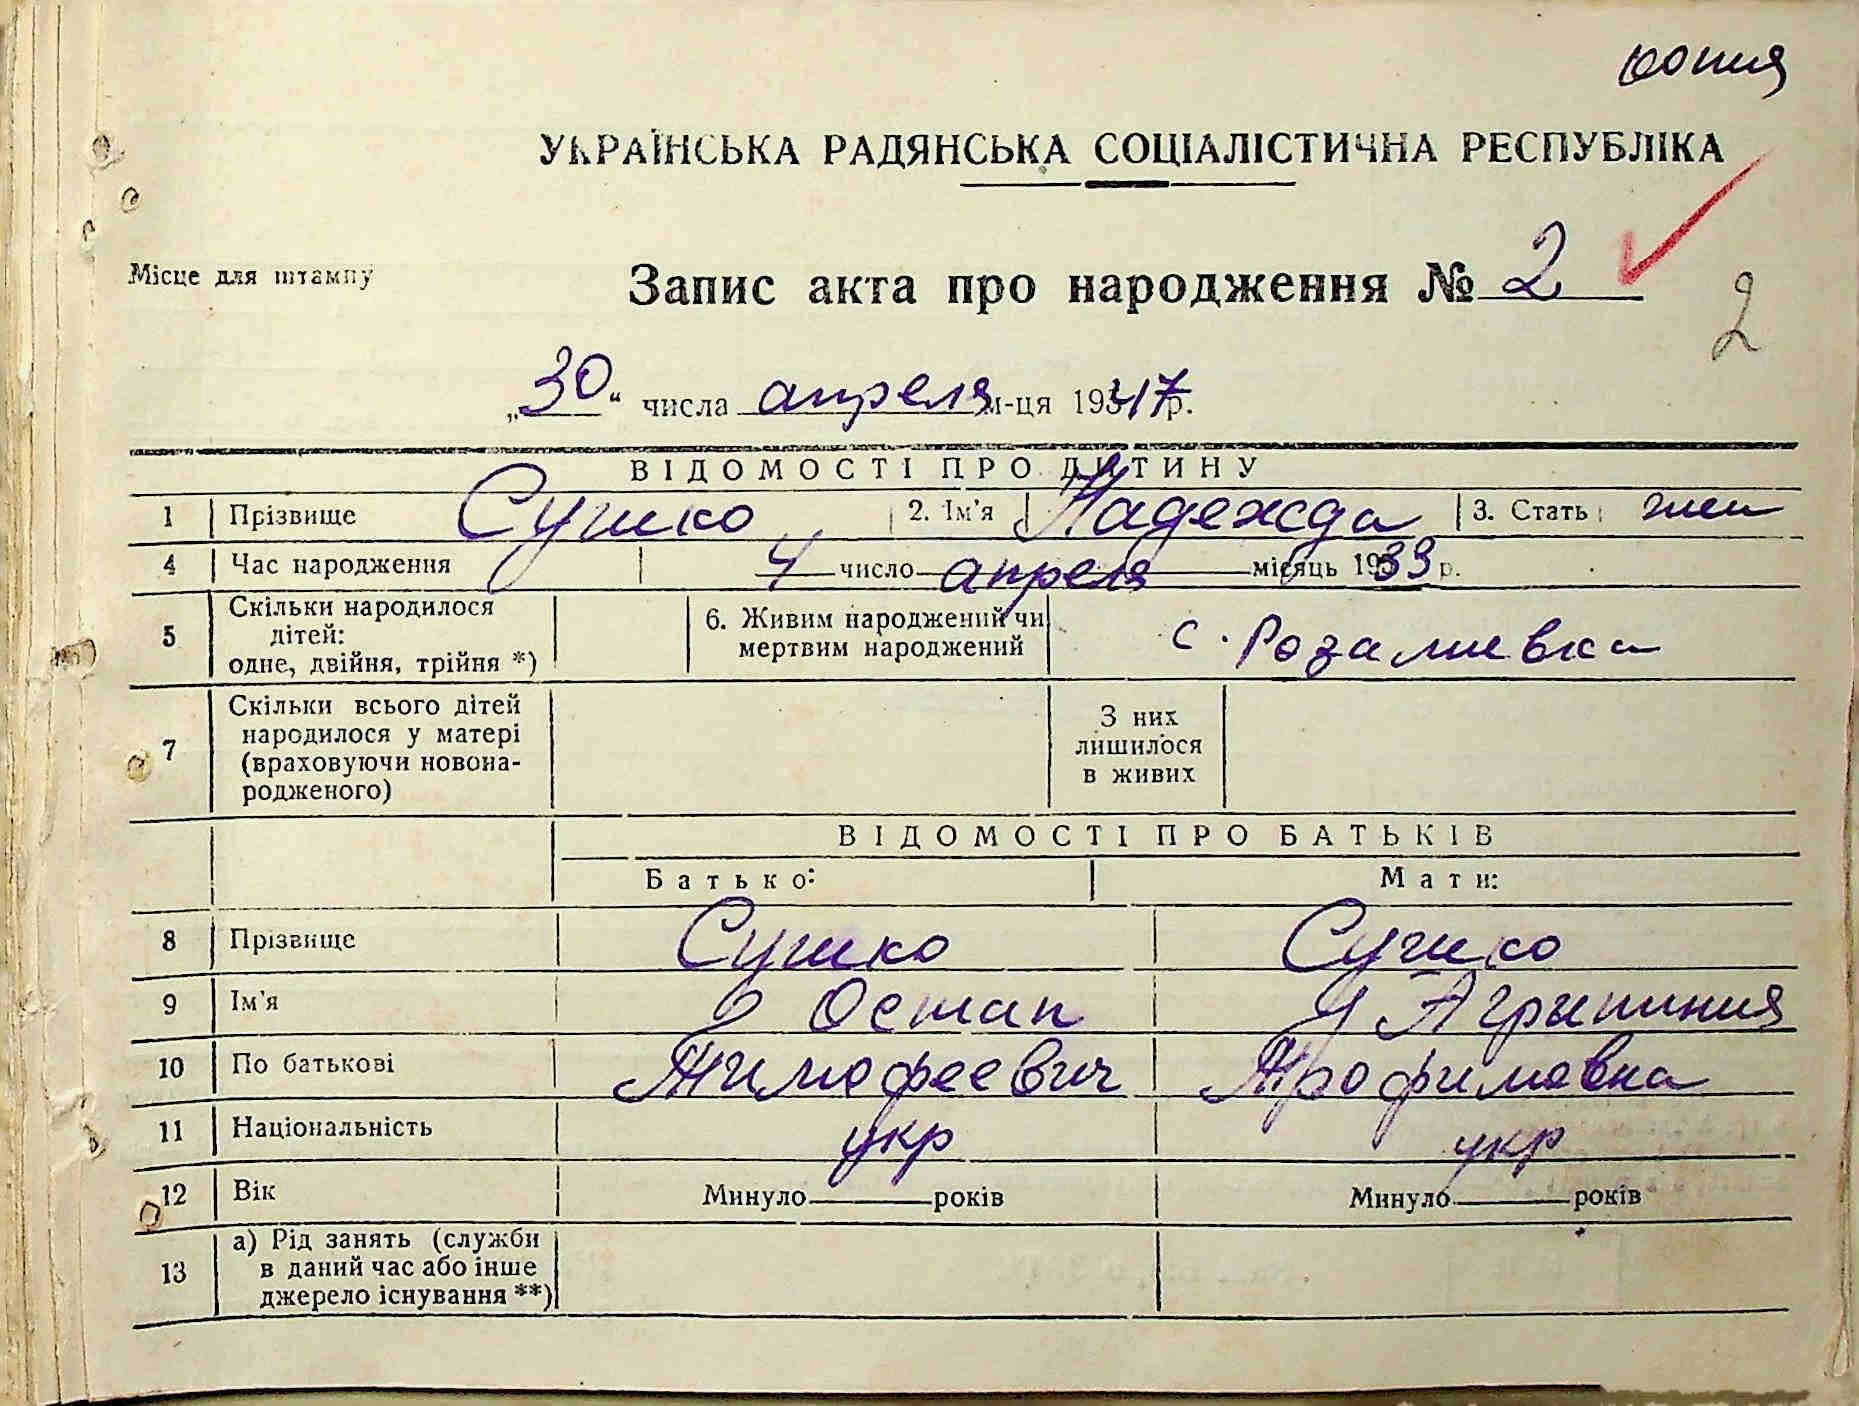 копия
УКРАЇНСЬКА РАДЯНСЬКА СОЦІАЛІСТИЧНА РЕСПУБЛІКА
Місце для штампу
Запис акта про народження № 2
2
„30“ числа апреля м-ця 1947 р.
ВІДОМОСТІ ПРО ДИТИНУ
1 Прізвище Сушко 2. Ім'я Надежда 3. Стать жен
4 Час народження 4 число апреля місяць 1939 р.
5 Скільки народилося дітей: одне, двійня, трійня *) 6. Живим народжений чи мертвим народжений с. Розалиевка
7 Скільки всього дітей народилося у матері (враховуючи новонародженого) З них лишилося в живих
ВІДОМОСТІ ПРО БАТЬКІВ
Батько: Мати:
8 Прізвище Сушко Сушко
9 Ім'я Остап Агрипиния
10 По батькові Тимофеевич Трофимовна
11 Національність укр укр
12 Вік Минуло років Минуло років
13 а) Рід занять (служби в даний час або інше джерело існування **)